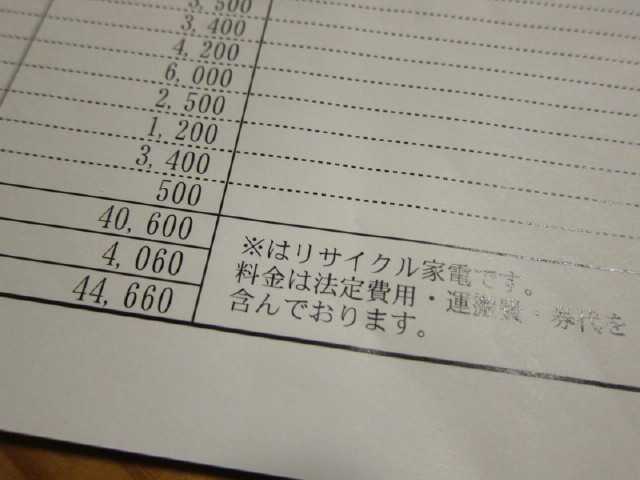 3,500
3,400
4,200
6,000
2,500
1,200
3,400
500
40,600
4,060
44,660
※はリサイクル家電です。
料金は法定費用・運搬費・券代を
含んでおります。